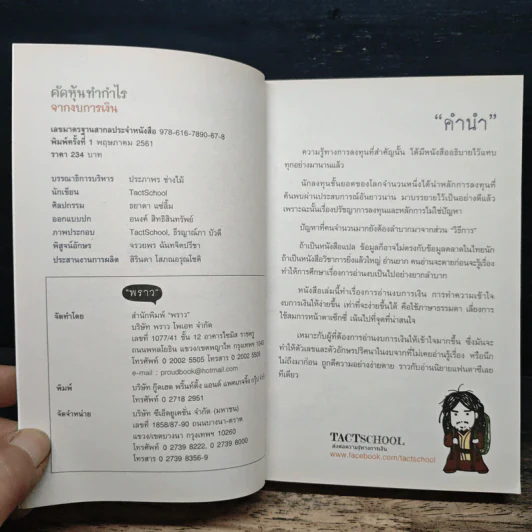 คัดหุ้นทำกำไร
จากงบการเงิน
เลขมาตรฐานสากลประจำหนังสือ 978-616-7890-67-8
พิมพ์ครั้งที่ 1 พฤษภาคม 2561
ราคา 234 บาท
บรรณาธิการบริหาร ประภาพร ช่างไม้
นักเขียน TactSchool
ศิลปกรรม รยาดา แซ่ลิ้ม
ออกแบบปก อนงค์ สิทธิสินทรัพย์
ภาพประกอบ TactSchool, ธีรญาณ์ภา บัวดี
พิสูจน์อักษร จรวยพร ฉันทจิตปรีชา
ประสานงานการผลิต สิรินดา โสภณอรุณโชติ
"พราว"
จัดทำโดย สำนักพิมพ์ "พราว"
บริษัท พราว โพเอท จำกัด
เลขที่ 1077/41 ชั้น 12 อาคารโชมัส ราชครู
ถนนพหลโยธิน แขวงเขตพญาไท กรุงเทพฯ
โทรศัพท์ 0 2002 5505 โทรสาร 0 2002
e-mail : proudbook@hotmail.com
พิมพ์ บริษัท กู๊ดเฮด พริ้นท์ติ้ง แอนด์ แพคเกจจิ้ง กรุ๊ป จำกัด
โทรศัพท์ 0 2718 2951
จัดจำหน่าย บริษัท ซีเอ็ดยูเคชั่น จำกัด (มหาชน)
เลขที่ 1858/87-90 ถนนบางนา-ตราด
แขวง/เขตบางนา กรุงเทพฯ 10260
โทรศัพท์ 0 2739 8222, 0 2739 8000
โทรสาร 0 2739 8356-9
"คำนำ"
ความรู้ทางการลงทุนที่สำคัญนั้น ได้มีหนังสืออธิบายไว้แทบ
ทุกอย่างมานานแล้ว
นักลงทุนชั้นยอดของโลกจำนวนหนึ่งได้นำหลักการลงทุนที่
ค้นพบผ่านประสบการณ์อันยาวนาน มาบรรยายไว้เป็นอย่างดีแล้ว
เพราะฉะนั้นเรื่องปรัชญาการลงทุนและหลักการไม่ใช่ปัญหา
ปัญหาที่คนจำนวนมากยังต้องลำบากมาจากส่วน "วิธีการ"
ถ้าเป็นหนังสือแปล ข้อมูลก็อาจไม่ตรงกับข้อมูลตลาดในไทยนัก
ถ้าเป็นหนังสือวิชาการยิ่งแล้วใหญ่ อ่านยาก คนอ่านจะตายก่อนจะรู้เรื่อง
ทำให้การศึกษาเรื่องการอ่านงบเป็นไปอย่างยากลำบาก
หนังสือเล่มนี้ทำเรื่องการอ่านงบการเงิน การทำความเข้าใจ
งบการเงินให้ง่ายขึ้น เท่าที่จะง่ายขึ้นได้ คือใช้ภาษาธรรมดา เลี่ยงการ
ใช้สมการหน้าตาเซ็กซี่ เน้นไปที่จุดที่น่าสนใจ
เหมาะกับผู้ที่ต้องการอ่านงบการเงินให้เข้าใจมากขึ้น ซึ่งมันจะ
ทำให้ตัวเลขและตัวอักษรปริศนาในงบจากที่ไม่เคยอ่านรู้เรื่อง หรือนึก
ไม่ถึงมาก่อน ถูกตีความอย่างง่ายดาย ราวกับอ่านนิยายแฟนตาซีเลย
ทีเดียว
TACTSCHOOL
ส่งต่อความรู้ทางการเงิน
www.facebook.com/tactschool